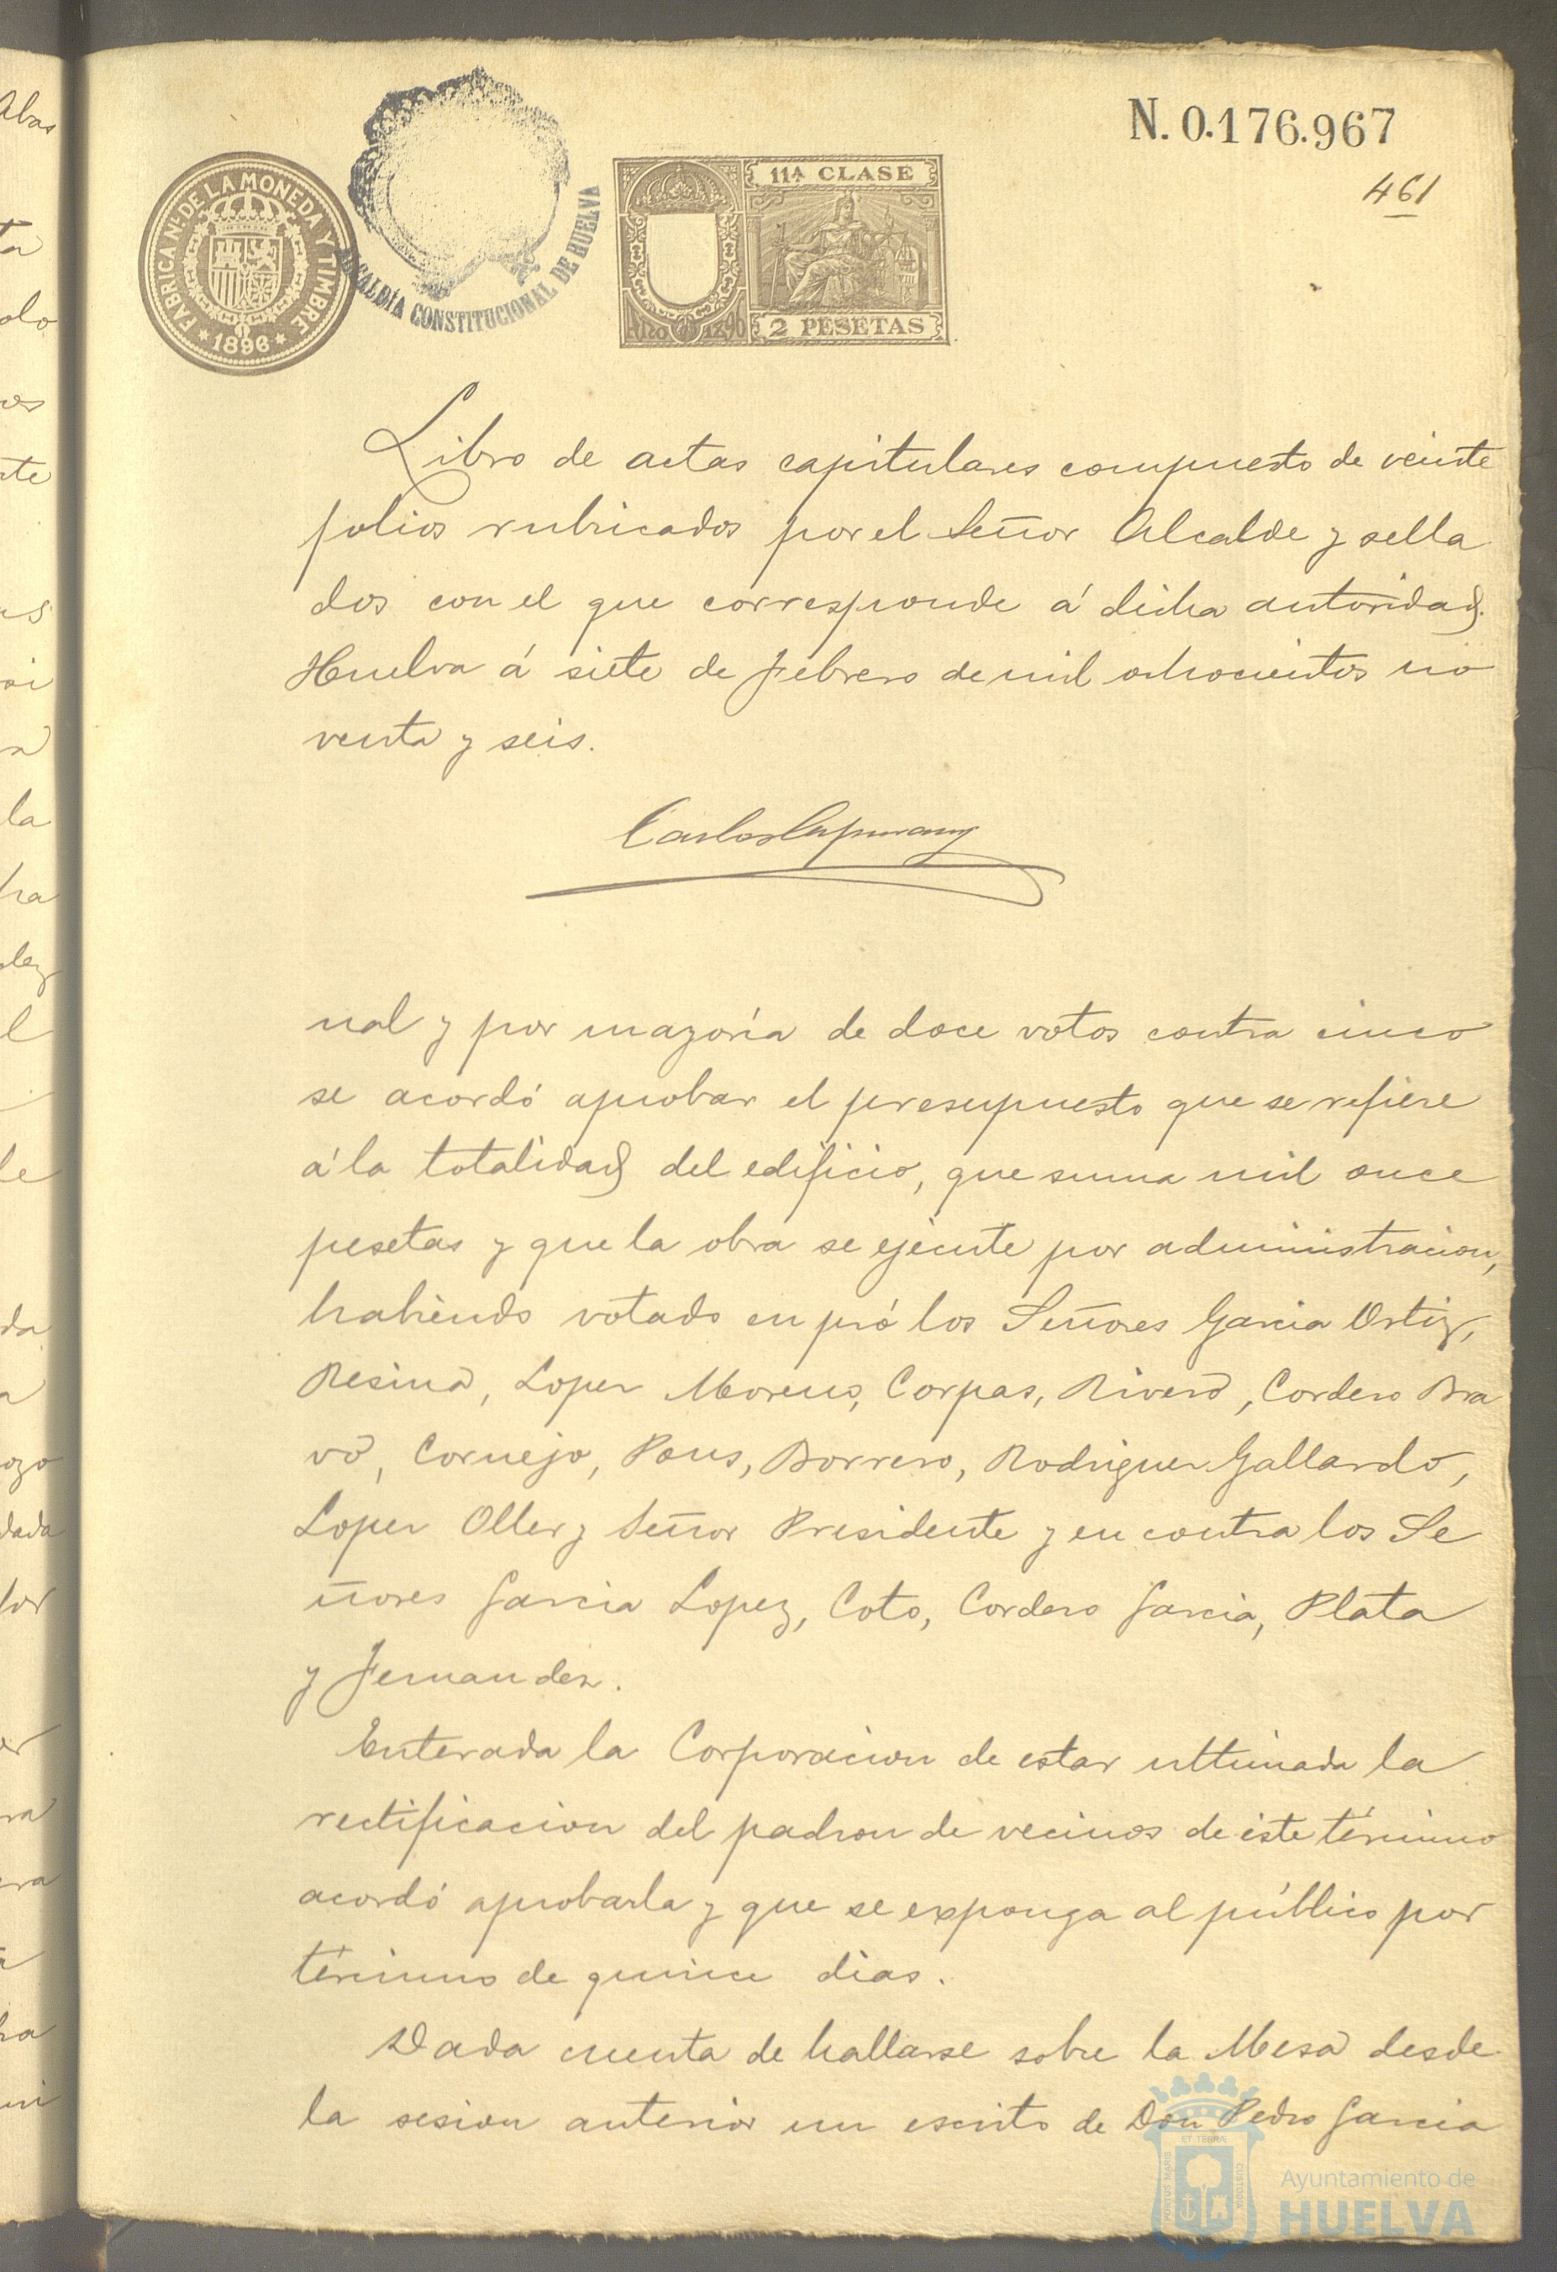 N. 0.176.967
461
FÁBRICA NL. DE LA MONEDA Y TIMBRE
1896
ALCALDÍA CONSTITUCIONAL DE HUELVA
11ª CLASE
2 PESETAS
Libro de actas capitulares compuesto de veinte
folios rubricados por el Señor Alcalde y sella
dos con el que corresponde á dicha autoridad.
Huelva á siete de Febrero de mil ochocientos no
venta y seis.
Carlos
nal y por mayoría de doce votos contra cinco
se acordó aprobar el presupuesto que se refiere
á la totalidad del edificio, que suma mil once
pesetas y que la obra se ejecute por administracion,
habiendo votado en pró los Señores Garcia Ortiz,
Resina, Lopez Moreno, Corpas, Rivero, Cordero Bra
vo, Cornejo, Pons, Borrero, Rodriguez Gallardo,
Lopez Oller y Señor Presidente y en contra los Se
ñores Garcia Lopez, Coto, Cordero Garcia, Plata
y Fernandez.
Enterada la Corporacion de estar ultimada la
rectificacion del padron de vecinos de este término
acordó aprobarla y que se exponga al público por
término de quince dias.
Dada cuenta de hallarse sobre la Mesa desde
la sesion anterior un escrito de Don Pedro Garcia
Ayuntamiento de
HUELVA